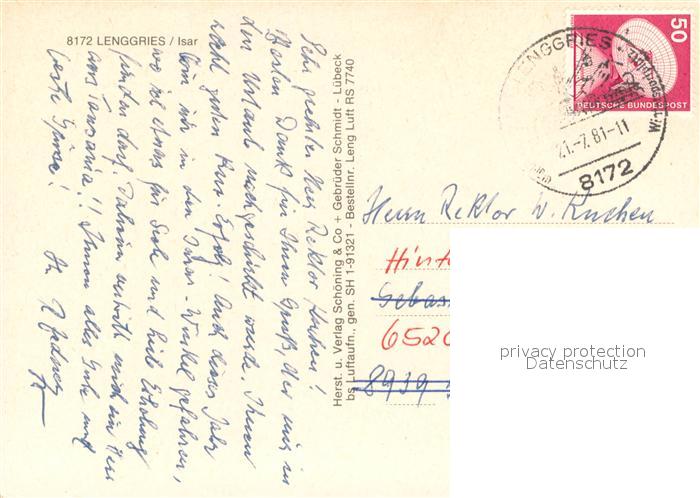 8172 LENGGRIES / Isar
Sehr geehrter Herr Rektor Kuchen!
Besten Dank für Ihren Gruß, der mir in
den Urlaub nachgeschickt wurde. Ihnen
recht guten Kur-Erfolg! Auch dieses Jahr
bin ich in den Isar-Winkel gefahren,
wo ich etwas für Seele und Leib Erholung
finden darf. Daheim vertritt mich ein Herr
aus Tansania!! Ihnen alles Gute und
beste Grüsse!
Ihr
Herst. u. Verlag Schöning & Co + Gebrüder Schmidt - Lübeck
bs Luftaufn., gen. SH 1-91321 - Bestellnr. Leng Luft RS 7740
50
DEUTSCHE BUNDESPOST
LENGGRIES
21.-7.81-11
8172
Herrn Rektor W. Kuchen
Hint
Sebas
6520
8939
privacy protection
Datenschutz